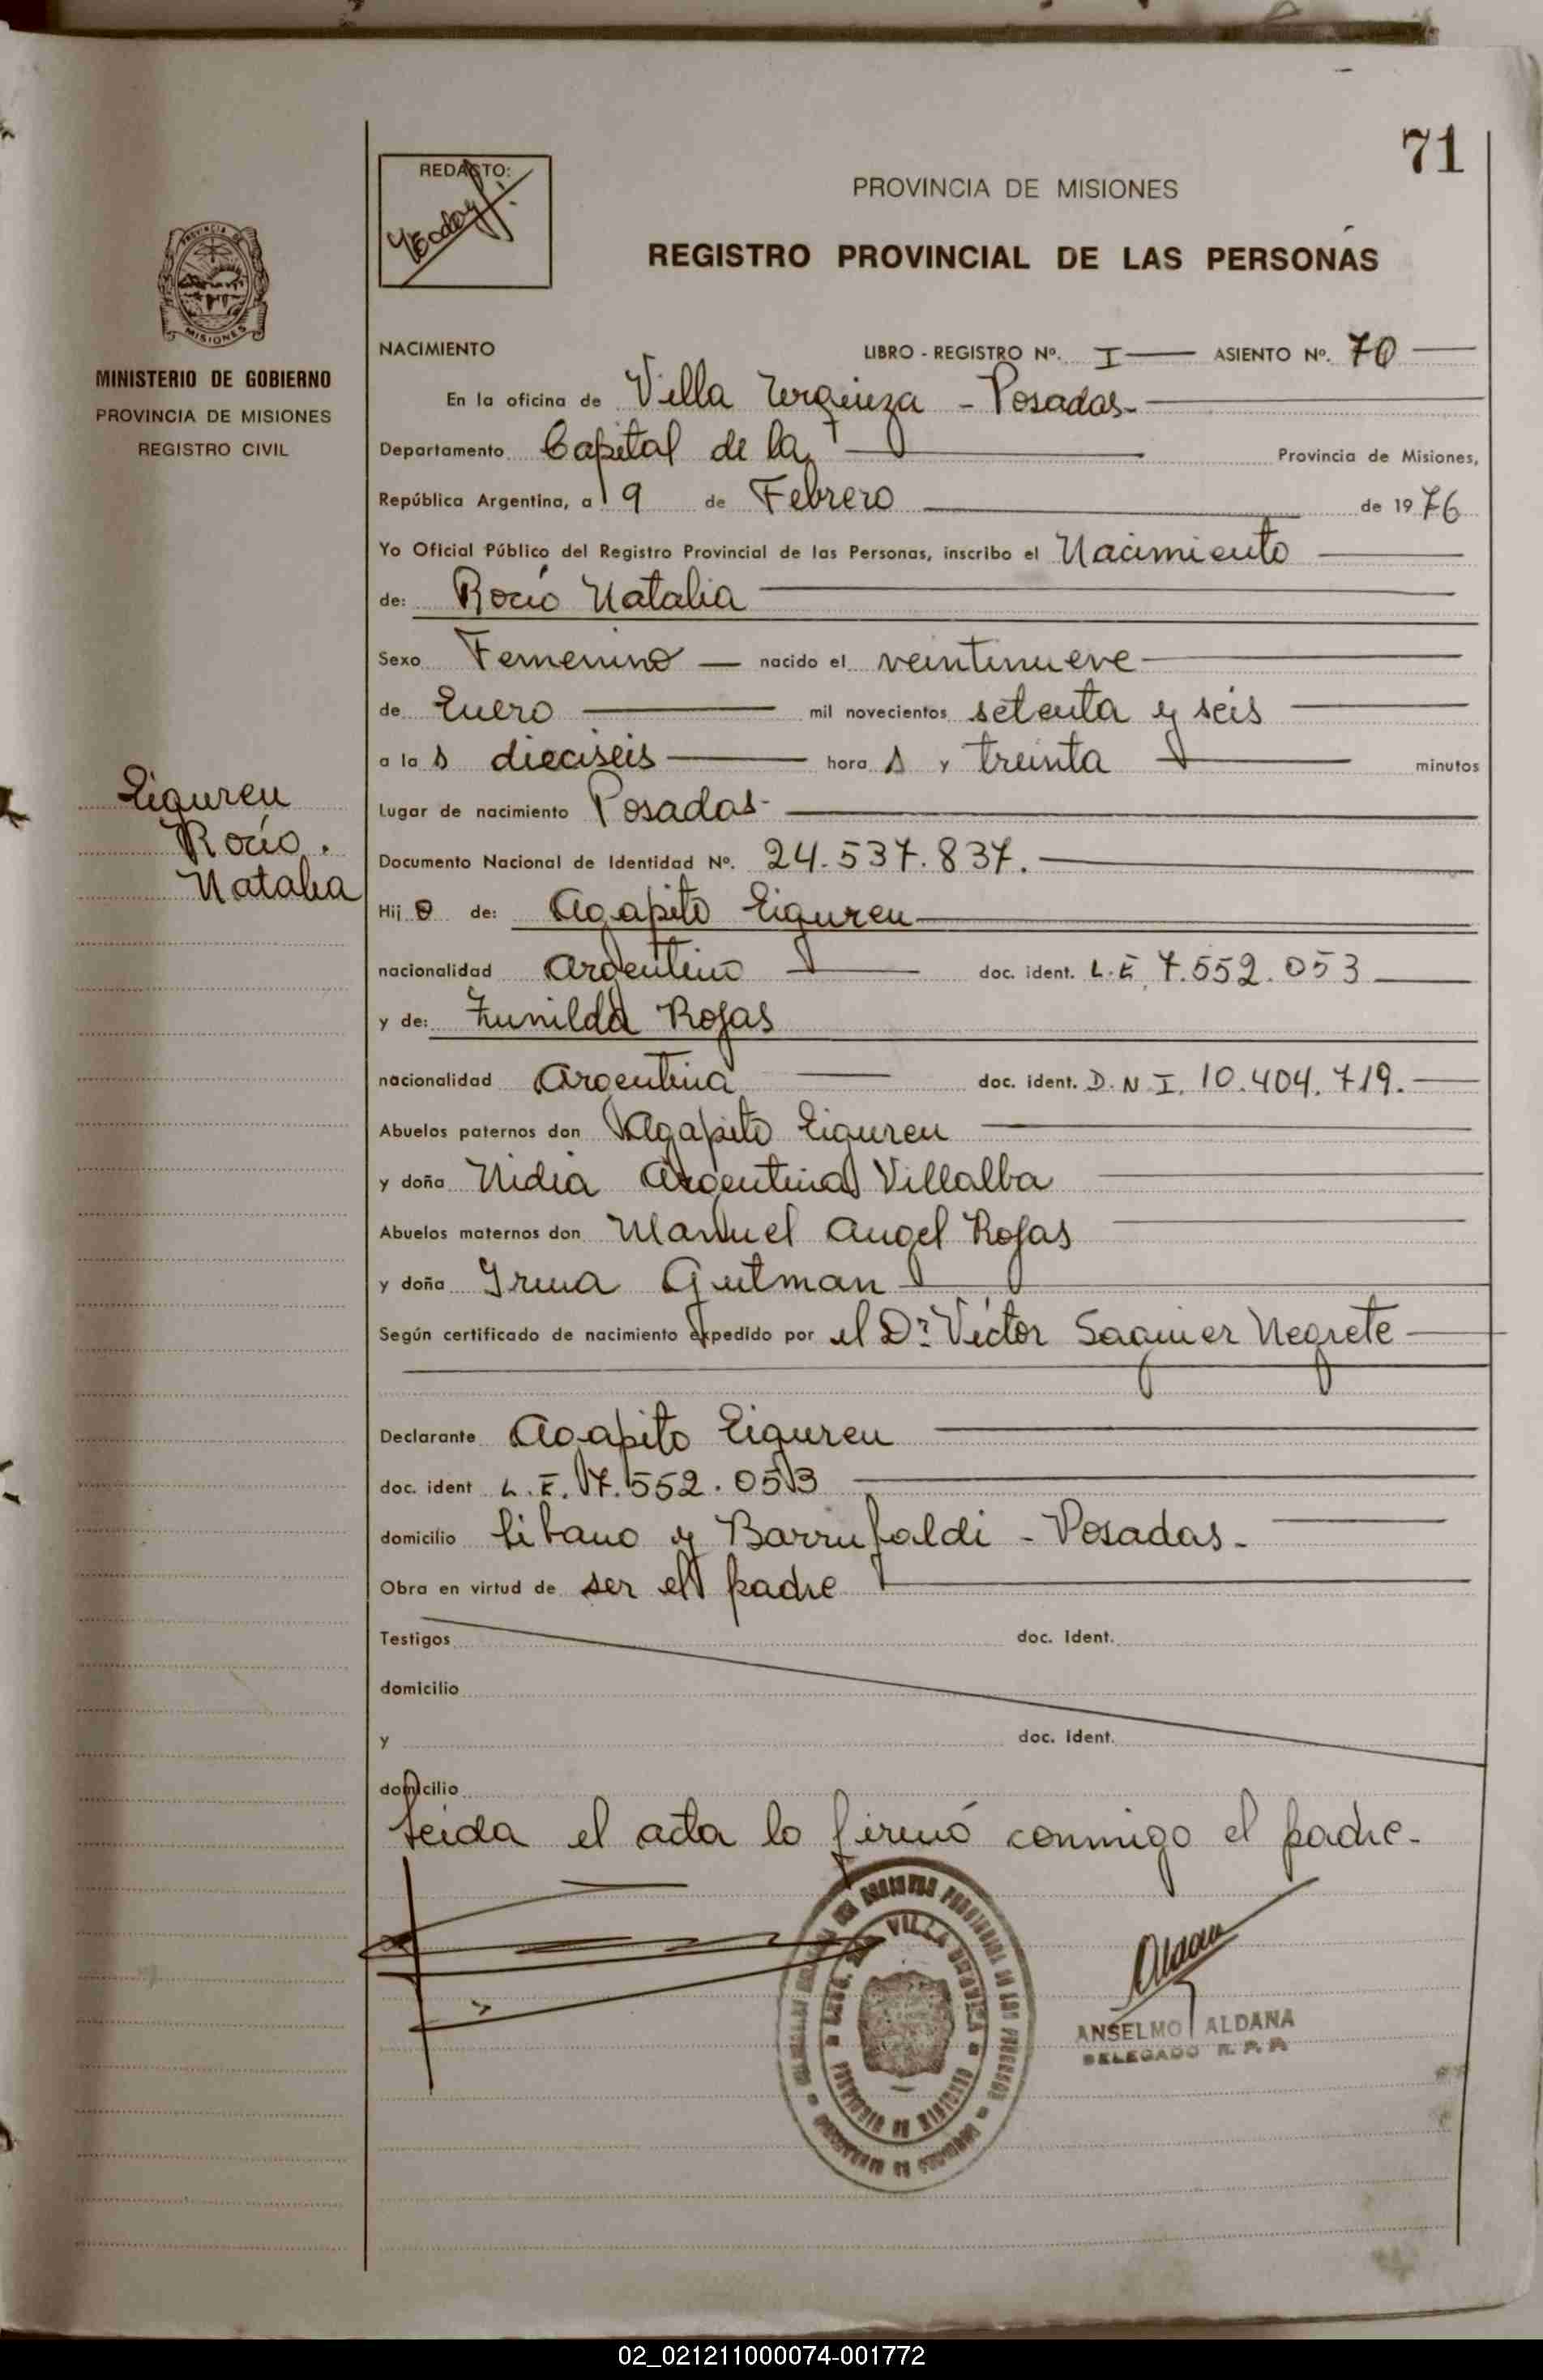 71
REDACTO:
PROVINCIA DE MISIONES
REGISTRO PROVINCIAL DE LAS PERSONAS
PROVINCIA DE
MISIONES
MINISTERIO DE GOBIERNO
PROVINCIA DE MISIONES
REGISTRO CIVIL
NACIMIENTO LIBRO - REGISTRO Nº. I ASIENTO Nº. 70
En la oficina de Villa Urquiza - Posadas-
Departamento Capital de la Provincia de Misiones,
República Argentina, a 9 de Febrero de 1976
Yo Oficial Público del Registro Provincial de las Personas, inscribo el Nacimiento
de: Rocío Natalia
Sexo Femenino nacido el veintinueve
de Enero mil novecientos setenta y seis
a las dieciseis horas y treinta minutos
Lugar de nacimiento Posadas-
Eiguren
Rocío.
Natalia
Documento Nacional de Identidad Nº. 24.537.837.
Hija de: Agapito Eiguren
nacionalidad Argentino doc. ident. L.E. 7.552.053
y de: Zunilda Rojas
nacionalidad Argentina doc. ident. D.N.I. 10.404.719.
Abuelos paternos don Agapito Eiguren
y doña Nidia Argentina Villalba
Abuelos maternos don Manuel Angel Rojas
y doña Irma Gutman
Según certificado de nacimiento expedido por el Dr. Víctor Saguier Negrete
Declarante Agapito Eiguren
doc. ident L.E. 7.552.053
domicilio Libano y Barrufaldi - Posadas.
Obra en virtud de ser el padre
Testigos doc. Ident.
domicilio
y doc. Ident.
domicilio
Leida el acta lo firmó conmigo el padre.
VILLA URQUIZA
ANSELMO ALDANA
DELEGADO R.P.P.
02_021211000074-001772